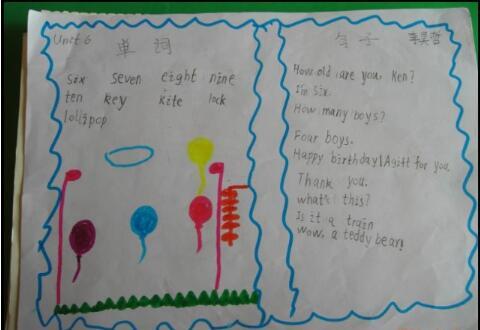 Unit 6
单词
six seven eight nine
ten key kite lock
lollipop
句子 李昊哲
How old are you, Ken?
I'm six.
How many boys?
Four boys.
Happy birthday! A gift for you.
Thank you.
what's this?
Is it a train
wow, a teddy bear!